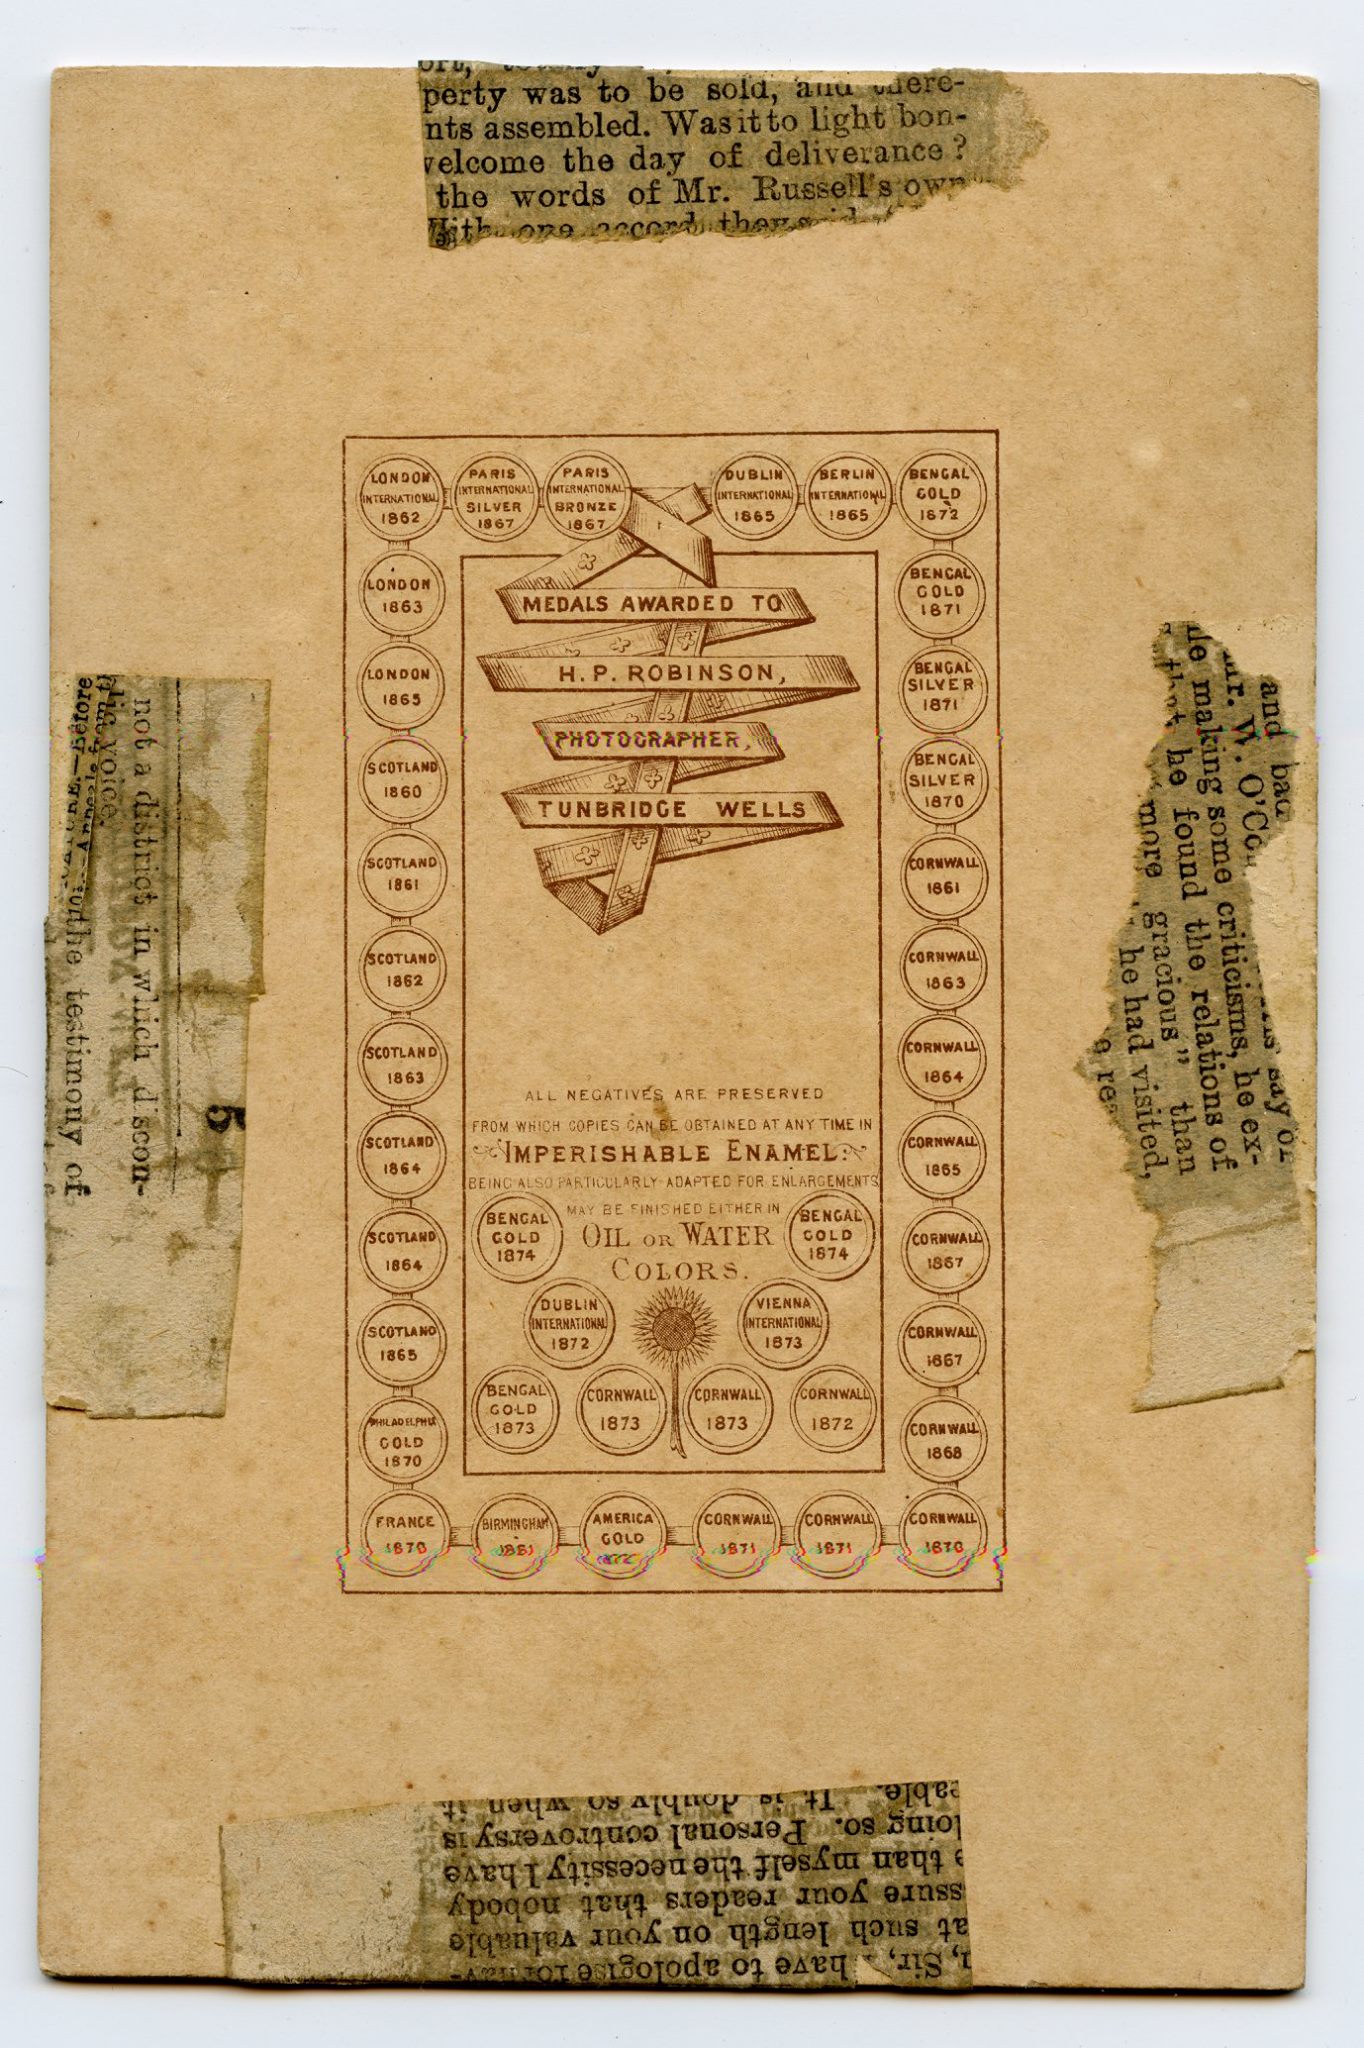 perty was to be sold, and there-
nts assembled. Was it to light bon-
velcome the day of deliverance?
the words of Mr. Russell's own
With one accord they said
LONDON INTERNATIONAL 1862
PARIS INTERNATIONAL SILVER 1867
PARIS INTERNATIONAL BRONZE 1867
DUBLIN INTERNATIONAL 1865
BERLIN INTERNATIONAL 1865
BENGAL GOLD 1872
LONDON 1863
BENGAL GOLD 1871
LONDON 1865
BENGAL SILVER 1871
SCOTLAND 1860
BENGAL SILVER 1870
SCOTLAND 1861
CORNWALL 1861
SCOTLAND 1862
CORNWALL 1863
SCOTLAND 1863
CORNWALL 1864
SCOTLAND 1864
CORNWALL 1865
SCOTLAND 1864
CORNWALL 1867
SCOTLAND 1865
CORNWALL 1867
PHILADELPHIA GOLD 1870
CORNWALL 1868
FRANCE 1870
BIRMINGHAM
AMERICA GOLD
CORNWALL 1871
CORNWALL 1871
CORNWALL 1870
MEDALS AWARDED TO
H. P. ROBINSON,
PHOTOGRAPHER,
TUNBRIDGE WELLS
ALL NEGATIVES ARE PRESERVED
FROM WHICH COPIES CAN BE OBTAINED AT ANY TIME IN
IMPERISHABLE ENAMEL.
BEING ALSO PARTICULARLY ADAPTED FOR ENLARGEMENTS
MAY BE FINISHED EITHER IN
OIL OR WATER
COLORS.
BENGAL GOLD 1874
BENGAL GOLD 1874
DUBLIN INTERNATIONAL 1872
VIENNA INTERNATIONAL 1873
BENGAL GOLD 1873
CORNWALL 1873
CORNWALL 1873
CORNWALL 1872
5
not a district in which discon-
lic voice.
—Before
the testimony of
and bac
Mr. W. O'Co say of
le making some criticisms, he ex-
that he found the relations of
more gracious" than
he had visited,
e re
, Sir, I have to apologise for hav-
at such length on your valuable
ssure your readers that nobody
e than myself the necessity I have
loing so. Personal controversy is
eable. It is doubly so when it